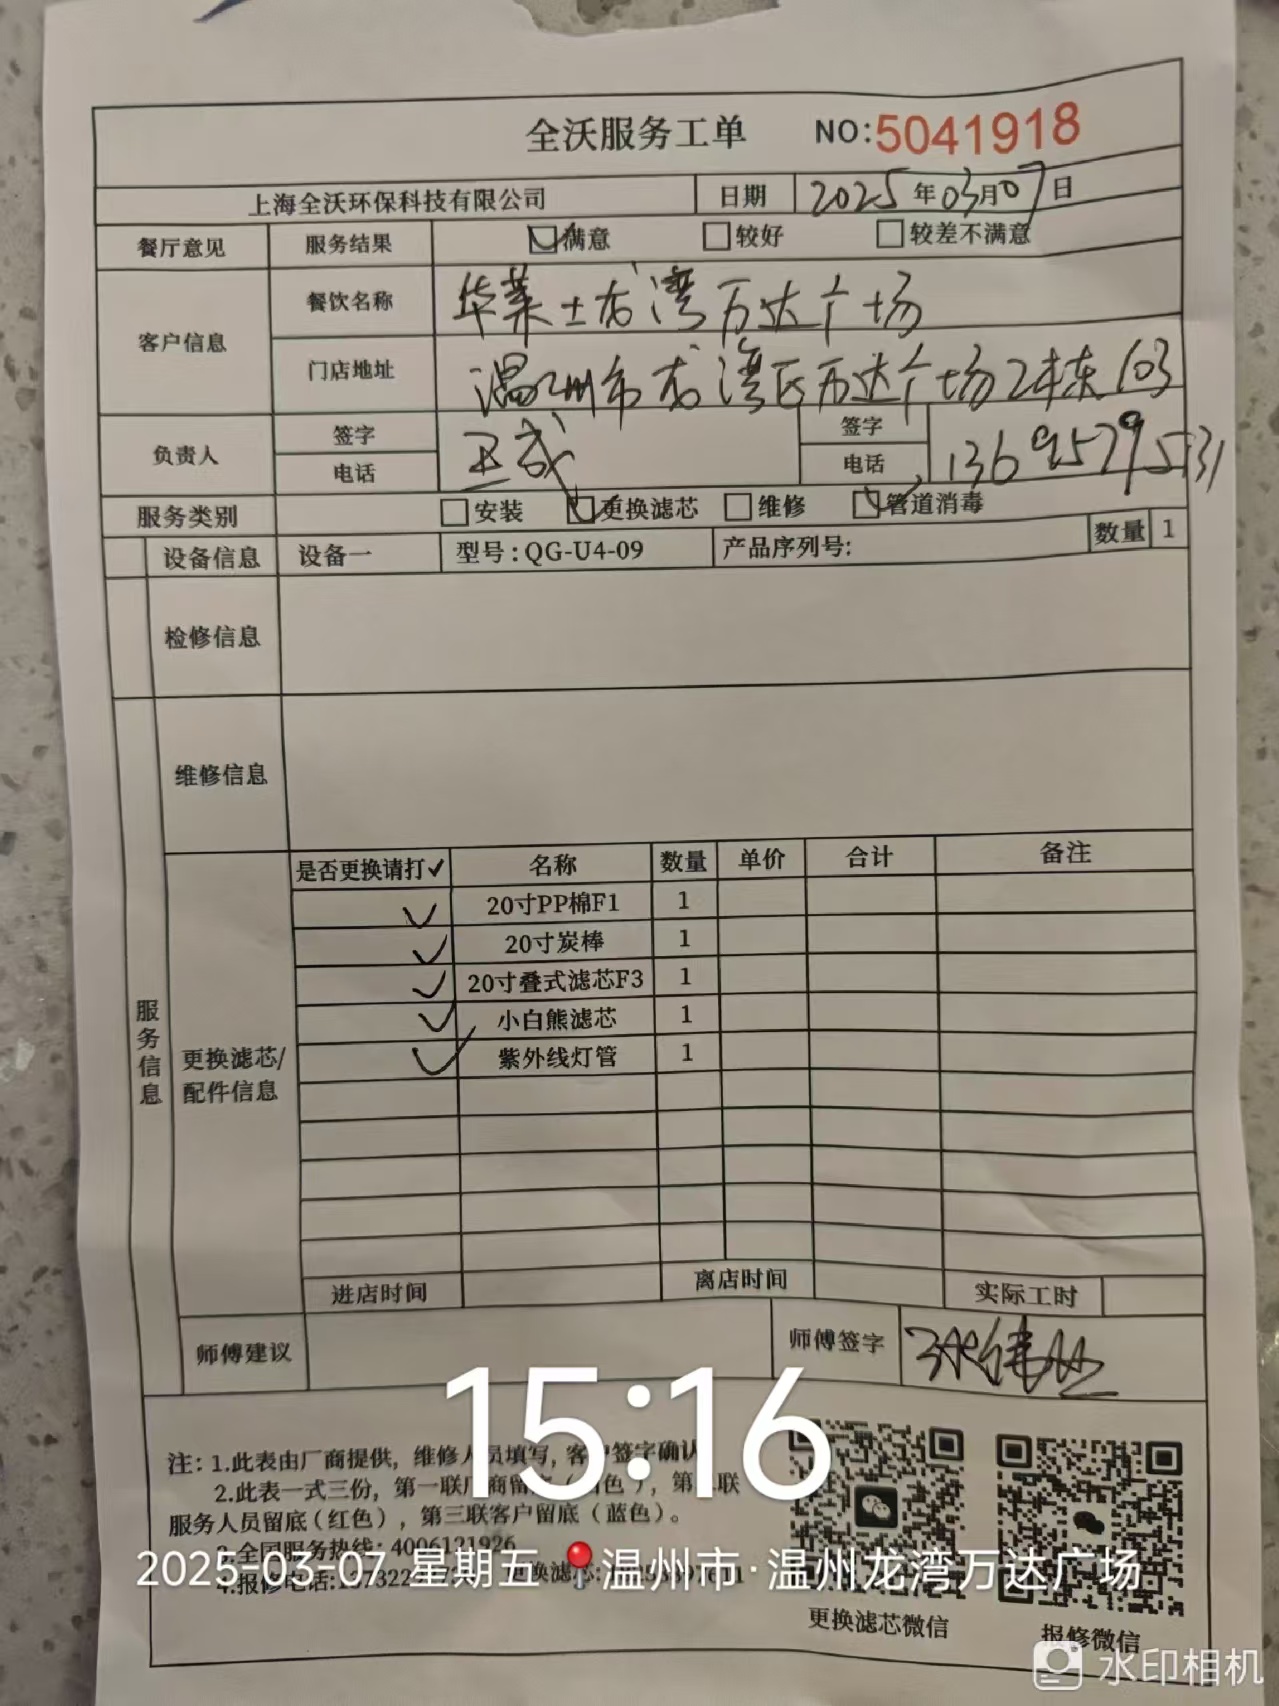 全沃服务工单 NO:5041918
上海全沃环保科技有限公司 日期 2025年03月07日
餐厅意见 服务结果 满意 较好 较差不满意
客户信息 餐饮名称 华莱士龙湾万达广场
门店地址 温州市龙湾区万达广场2栋103
负责人 签字 签字
电话 王成 电话 13695795131
服务类别 安装 更换滤芯 维修 管道消毒
设备信息 设备一 型号:QG-U4-09 产品序列号: 数量 1
检修信息
维修信息
服务信息
更换滤芯/
配件信息
是否更换请打✓ 名称 数量 单价 合计 备注
✓ 20寸PP棉F1 1
✓ 20寸炭棒 1
✓ 20寸叠式滤芯F3 1
✓ 小白熊滤芯 1
✓ 紫外线灯管 1
进店时间 离店时间 实际工时
师傅建议 师傅签字
15:16
注:1.此表由厂商提供,维修人员填写,客户签字确认
2.此表一式三份,第一联厂商留底(白色),第二联
服务人员留底(红色),第三联客户留底(蓝色)。
3.全国服务热线:4006121926
4.报修电话: 更换滤芯:
2025-03-07 星期五 温州市·温州龙湾万达广场
更换滤芯微信 报修微信
水印相机